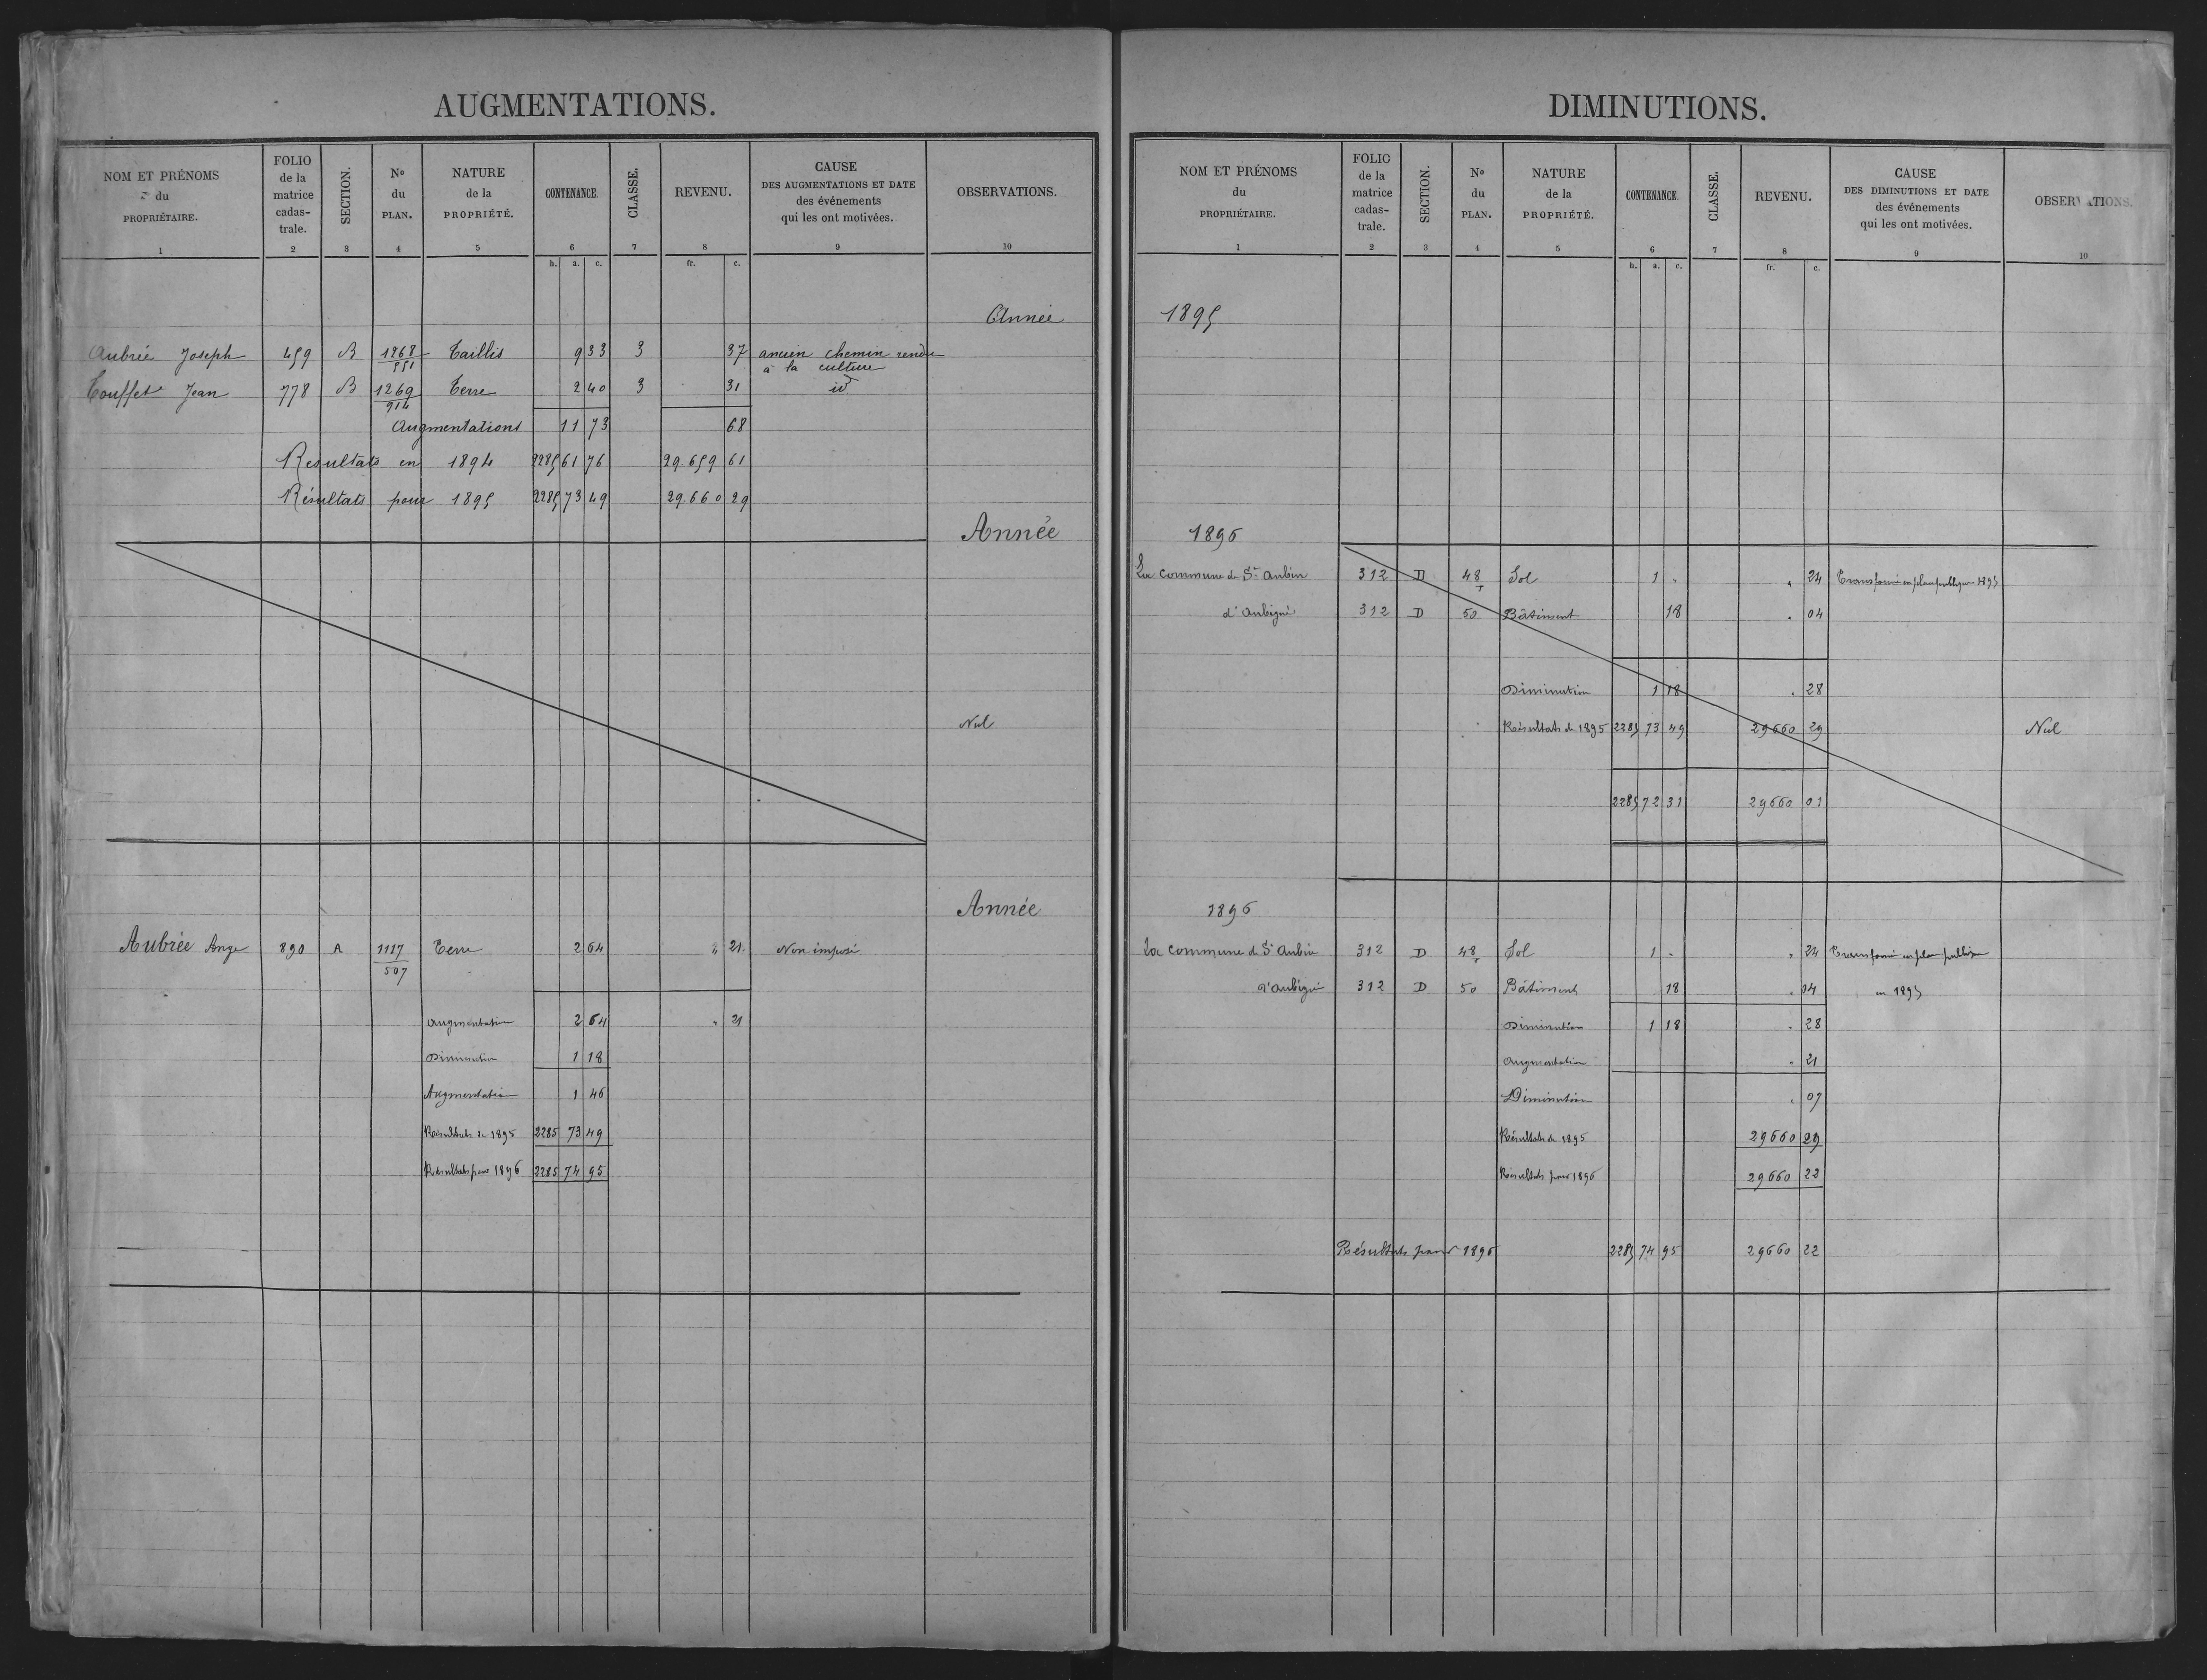 AUGMENTATIONS.
NOM ET PRÉNOMS du PROPRIÉTAIRE. 1
FOLIO de la matrice cadas- trale. 2
SECTION. 3
No du PLAN. 4
NATURE de la PROPRIÉTÉ. 5
CONTENANCE. 6
CLASSE. 7
REVENU. 8
CAUSE DES AUGMENTATIONS ET DATE des événements qui les ont motivées. 9
OBSERVATIONS. 10
h. a. c. fr. c.
Année
Aubrée Joseph 459 B 1268 Taillis 9 33 3 37 ancien chemin rendu
551 à la culture
Touffet Jean 778 B 1269 Terre 2 40 3 31 id
914
Augmentations 11 73 68
Resultats en 1894 2285 61 76 29.659 61
Résultats pour 1895 2285 73 49 29.660 29
Année
Nul
Année
Aubrée Ange 890 A 1117 Terre 2 64 " 21 Non imposé
507
Augmentation 2 64 " 21
Diminution 1 18
Augmentation 1 46
Résultats de 1895 2285 73 49
Résultats pour 1896 2285 74 95
DIMINUTIONS.
NOM ET PRÉNOMS du PROPRIÉTAIRE. 1
FOLIO de la matrice cadas- trale. 2
SECTION. 3
No du PLAN. 4
NATURE de la PROPRIÉTÉ. 5
CONTENANCE. 6
CLASSE. 7
REVENU. 8
CAUSE DES DIMINUTIONS ET DATE des événements qui les ont motivées. 9
OBSERVATIONS. 10
h. a. c. fr. c.
1895
1896
La commune de St Aubin 312 D 48 Sol 1 " " 24 Transformé en place publique 1895
d'Aubigné 312 D 50 Bâtiment 18 " 04
Diminution 1 18 " 28
Résultats de 1895 2285 73 49 29660 29 Nul
2285 72 31 29660 01
1896
La commune de St Aubin 312 D 48 Sol 1 " " 24 Transformé en place publique
d'Aubigné 312 D 50 Bâtiment 18 " 04 en 1895
Diminution 1 18 " 28
Augmentation " 21
Diminution " 07
Résultats de 1895 29660 29
Résultats pour 1896 29660 22
Résultats pour 1896 2285 74 95 29660 22